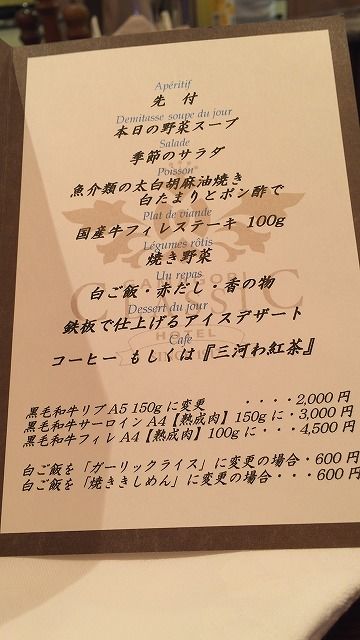 Apéritif
先 付
Demitasse soupe du jour
本日の野菜スープ
Salade
季節のサラダ
Poisson
魚介類の太白胡麻油焼き
白たまりとポン酢で
Plat de viande
国産牛フィレステーキ 100g
Légumes rôtis
焼き野菜
Un repas
白ご飯・赤だし・香の物
CLASSIC
Dessert du jour
鉄板で仕上げるアイスデザート
HOTEL
Cafe
コーヒー もしくは『三河わ紅茶』
黒毛和牛リブA5 150gに変更 ・・・・2,000円
黒毛和牛サーロインA4【熟成肉】150gに・3,000円
黒毛和牛フィレA4【熟成肉】100gに・・・4,500円
白ご飯を「ガーリックライス」に変更の場合・600円
白ご飯を「焼ききしめん」に変更の場合・・・600円